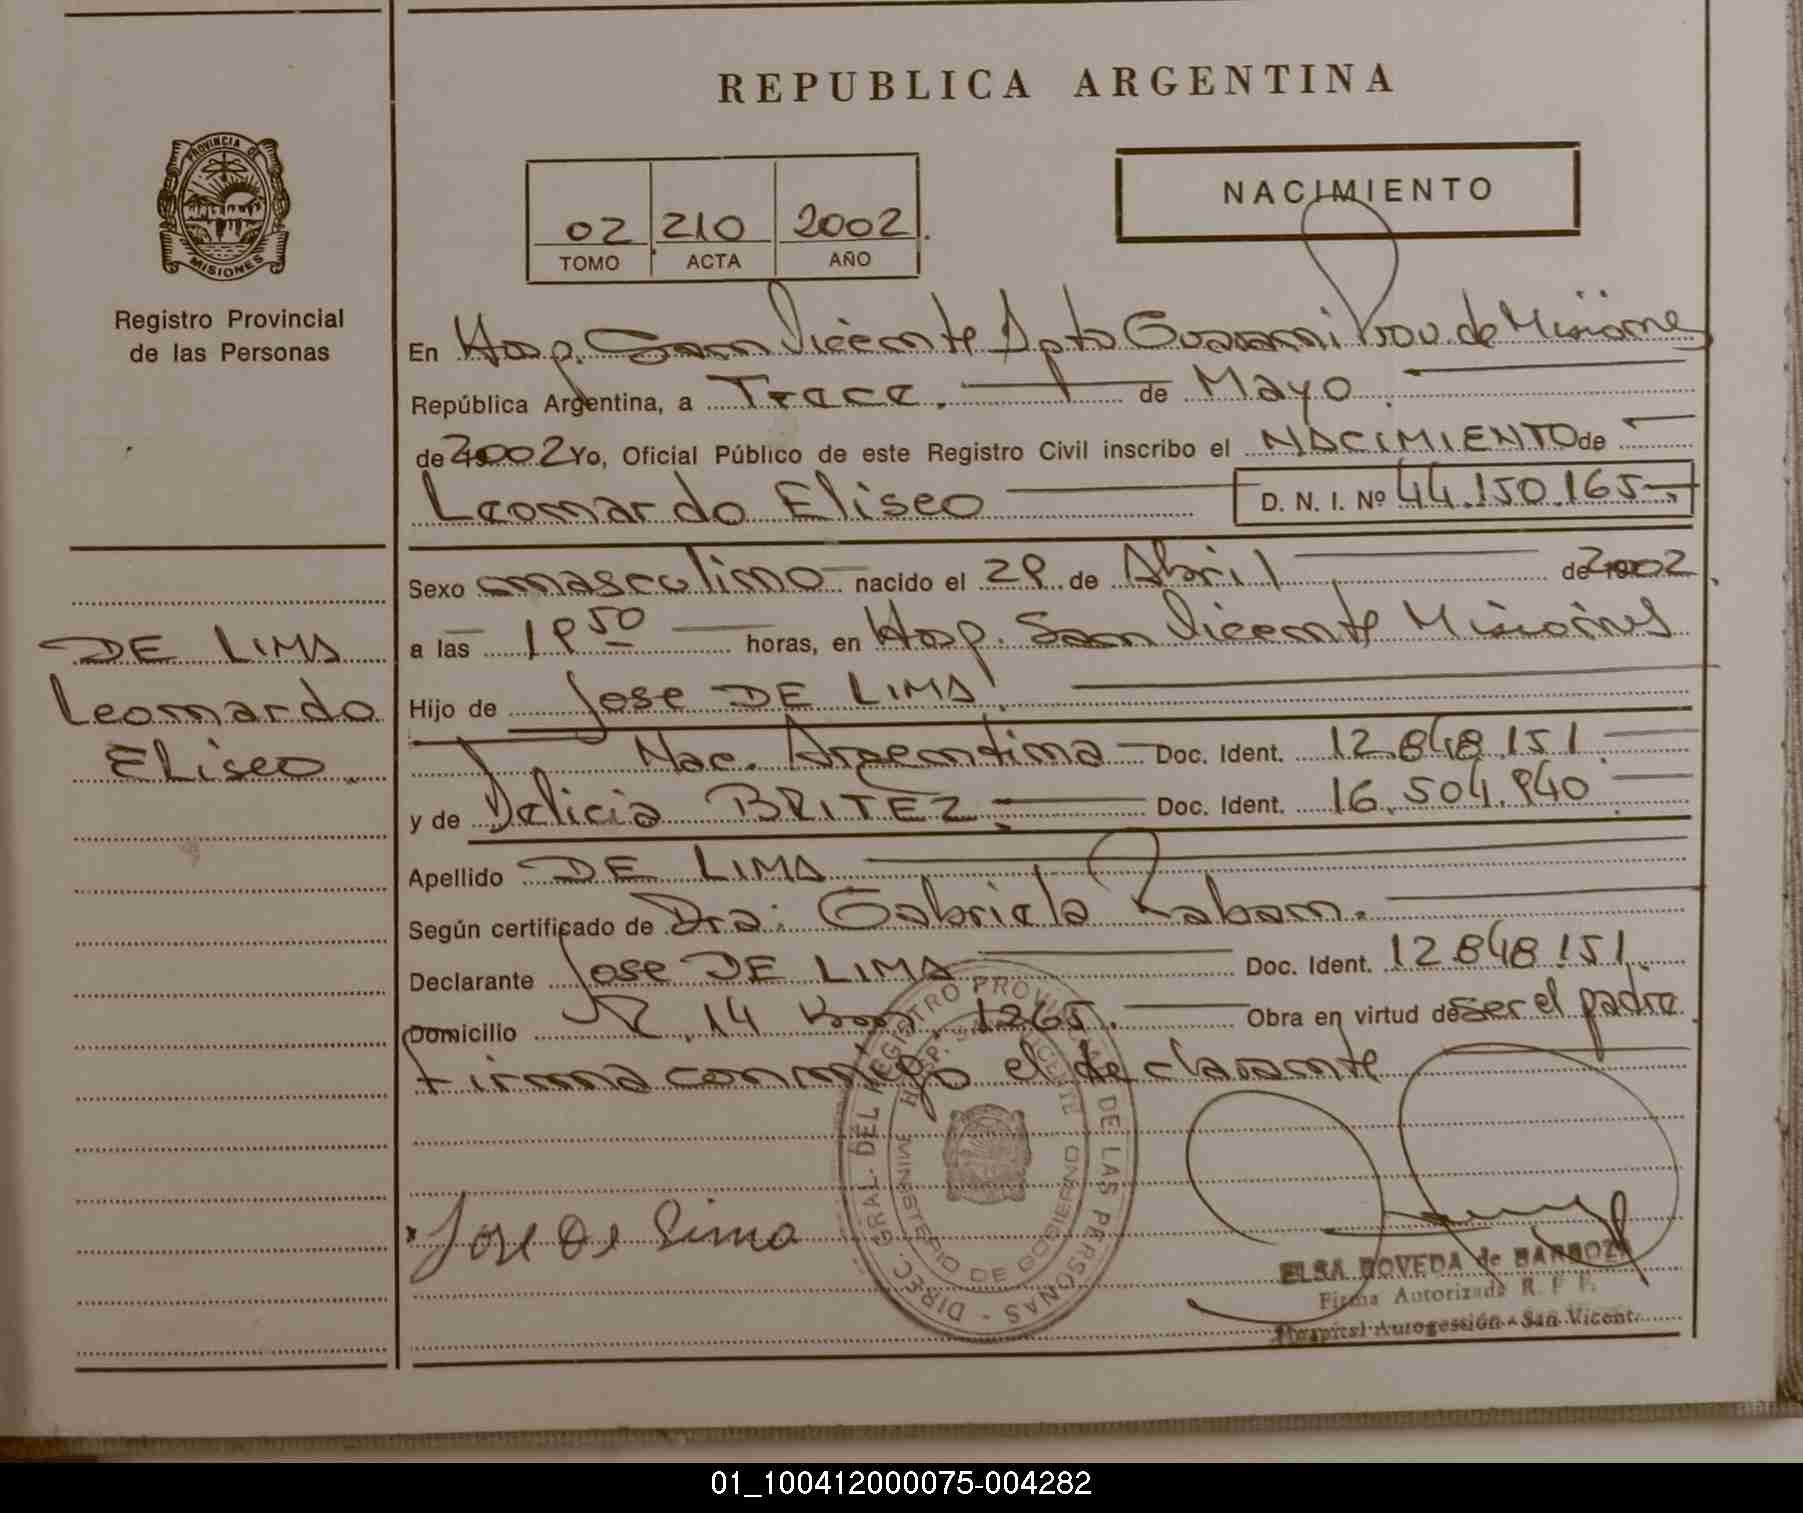 REPUBLICA ARGENTINA
PROVINCIA DE
MISIONES
Registro Provincial
de las Personas
NACIMIENTO
02 210 2002
TOMO ACTA AÑO
En Hosp. San Vicente Dpto Guarani Prov. de Misiones
República Argentina, a Trece. de Mayo.
de 2002 Yo, Oficial Público de este Registro Civil inscribo el NACIMIENTO de
Leonardo Eliseo D. N. I. Nº 44.150.165
Sexo masculino nacido el 29 de Abril de 2002
a las 19 50 horas, en Hosp. San Vicente Misiones
Hijo de Jose DE LIMA.
Nac. Argentina Doc. Ident. 12.848.151.
y de Delicia BRITEZ. Doc. Ident. 16.504.940.
Apellido DE LIMA
Según certificado de Dra: Gabriela Raban.
Declarante Jose DE LIMA Doc. Ident. 12.848.151.
Domicilio R. 14 1265. Obra en virtud de ser el padre.
Firma conmigo el declarante
DE LIMA
Leonardo
Eliseo
Jose De Lima
DIREC. GRAL. DEL REGISTRO PROVINCIAL DE LAS PERSONAS
HOSP. SAN VICENTE
MINISTERIO DE GOBIERNO
ELSA BOVEDA de BARBOZA
Firma Autorizada R. P. P.
Hospital Autogestión - San Vicente
01_100412000075-004282